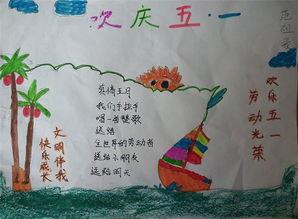 欢庆五·一
英倚五月
我们手拉手
唱一首赞歌
送给
全世界的劳动者
送给小朋友
送给明天
欢乐五一
劳动光荣
文明伴我
快乐成长